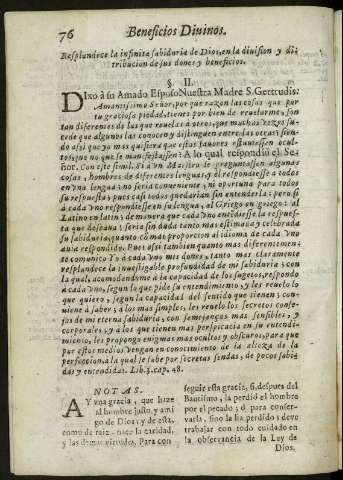 76 Beneficios Diuinos.
Resplandece la infinita sabiduria de Dios, en la diuision y di-
tribucion de sus dones y beneficios.
§. II.
DIxo à su Amado Esposo Nuestra Madre S. Gertrudis:
Amantissimo Señor, por què razon las cosas que por
tu graciosa piedad, tienes por bien de reuelarme, son
tan diferentes de las que reuelas à otros, que muchas vezes su-
cede que algunos las conocen y distinguen entre las otras; sien-
do assi que yo mas quisiera que estos fauores estuuiessen ocul-
tos, que no que se manifestassen? A lo qual respondiò el Se-
ñor. Con este simil. Si à vn Maestro le preguntassen algunas
cosas, hombres de diferentes lenguas, y èl respondiesse à todos
en vna lengua: no seria conueniente, ni oportuna para todos
su respuesta; pues casi todos quedarian sin entenderla: pero si
à cada vno respondiesse en su lengua, al Griego en griego: al
Latino en latin: de manera que cada vno entẽdiesse la respues-
ta que desseaua: seria sin duda tanto mas estimada y celebrada
su sabiduria, quanto cõ mas proporcion al idioma de cada vno
auia respondido. Pues assi tambien quanto mas diferentemen-
te comunico Yo à cada vno mis dones, tanto mas claramente
resplandece la inuestigable profundidad de mi sabiduria: con
la qual, acomodandome à la capacidad de los sugetos, respondo
à cada vno, segun lo que pide su entendimiento, y les reuelo lo
que quiero, segun la capacidad del sentido que tienen; con-
uiene à saber, à los mas simples, les reuelo los secretos confe-
jos de mi eterna sabiduria, con semejanças mas sensibles, y
corporales; y à los que tienen mas perspicacia en su entendi-
miento, les propongo enigmas mas ocultos y obscuros, para que
por estos medios vengan en conocimiento de la alteza de la
perfeccion, à la qual se sube por secretas sendas, de pocos sabi-
das y entendidas. Lib. 3. cap. 48.
NOTAS.
AY vna gracia, que haze
al hombre justo, y ami-
go de Dios; y de esta,
como de raiz, nace la caridad,
y las demas virtudes. Para con
seguir esta gracia, si, despues del
Bautismo, la perdiò el hombre
por el pecado; ò para conser-
varla, sino la ha perdido: deve
trabajar con todo cuidado en
la obseruancia de la Ley de
Dios.